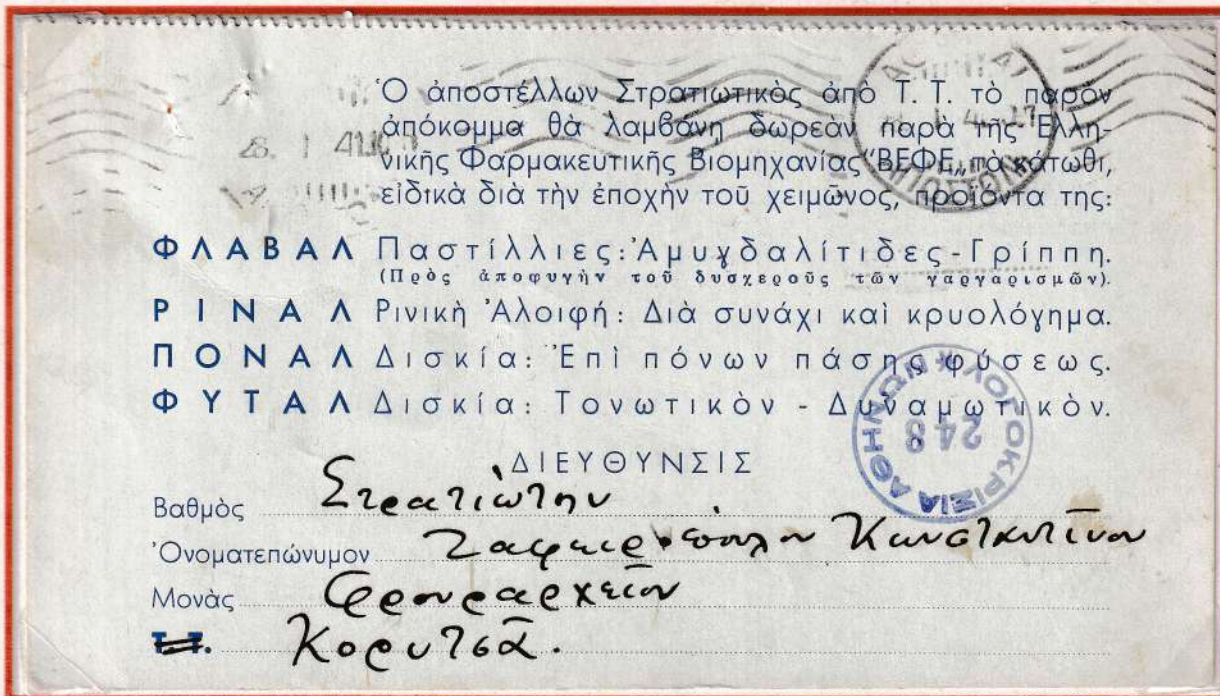 Ὁ ἀποστέλλων Στρατιωτικὸς ἀπὸ Τ. Τ. τὸ παρὸν
ἀπόκομμα θὰ λαμβάνη δωρεὰν παρὰ τῆς Ἑλλη-
νικῆς Φαρμακευτικῆς Βιομηχανίας "ΒΕΦΕ„ τὰ κάτωθι,
εἰδικὰ διὰ τὴν ἐποχὴν τοῦ χειμῶνος, προϊόντα της:
ΦΛΑΒΑΛ Παστίλλιες: Ἀμυγδαλίτιδες - Γρίππη.
(Πρὸς ἀποφυγὴν τοῦ δυσχεροῦς τῶν γαργαρισμῶν).
ΡΙΝΑΛ Ρινικὴ Ἀλοιφή: Διὰ συνάχι καὶ κρυολόγημα.
ΠΟΝΑΛ Δισκία: Ἐπὶ πόνων πάσης φύσεως.
ΦΥΤΑΛ Δισκία: Τονωτικὸν - Δυναμωτικὸν.
ΛΟΓΟΚΡΙΣΙΑ ΑΘΗΝΩΝ
248
ΔΙΕΥΘΥΝΣΙΣ
Βαθμὸς Στρατιώτην
Ὀνοματεπώνυμον Ζαφειρόπουλον Κωνσταντῖνον
Μονὰς Φρουραρχεῖον
Τ. Τ. Κορυτσᾶ.